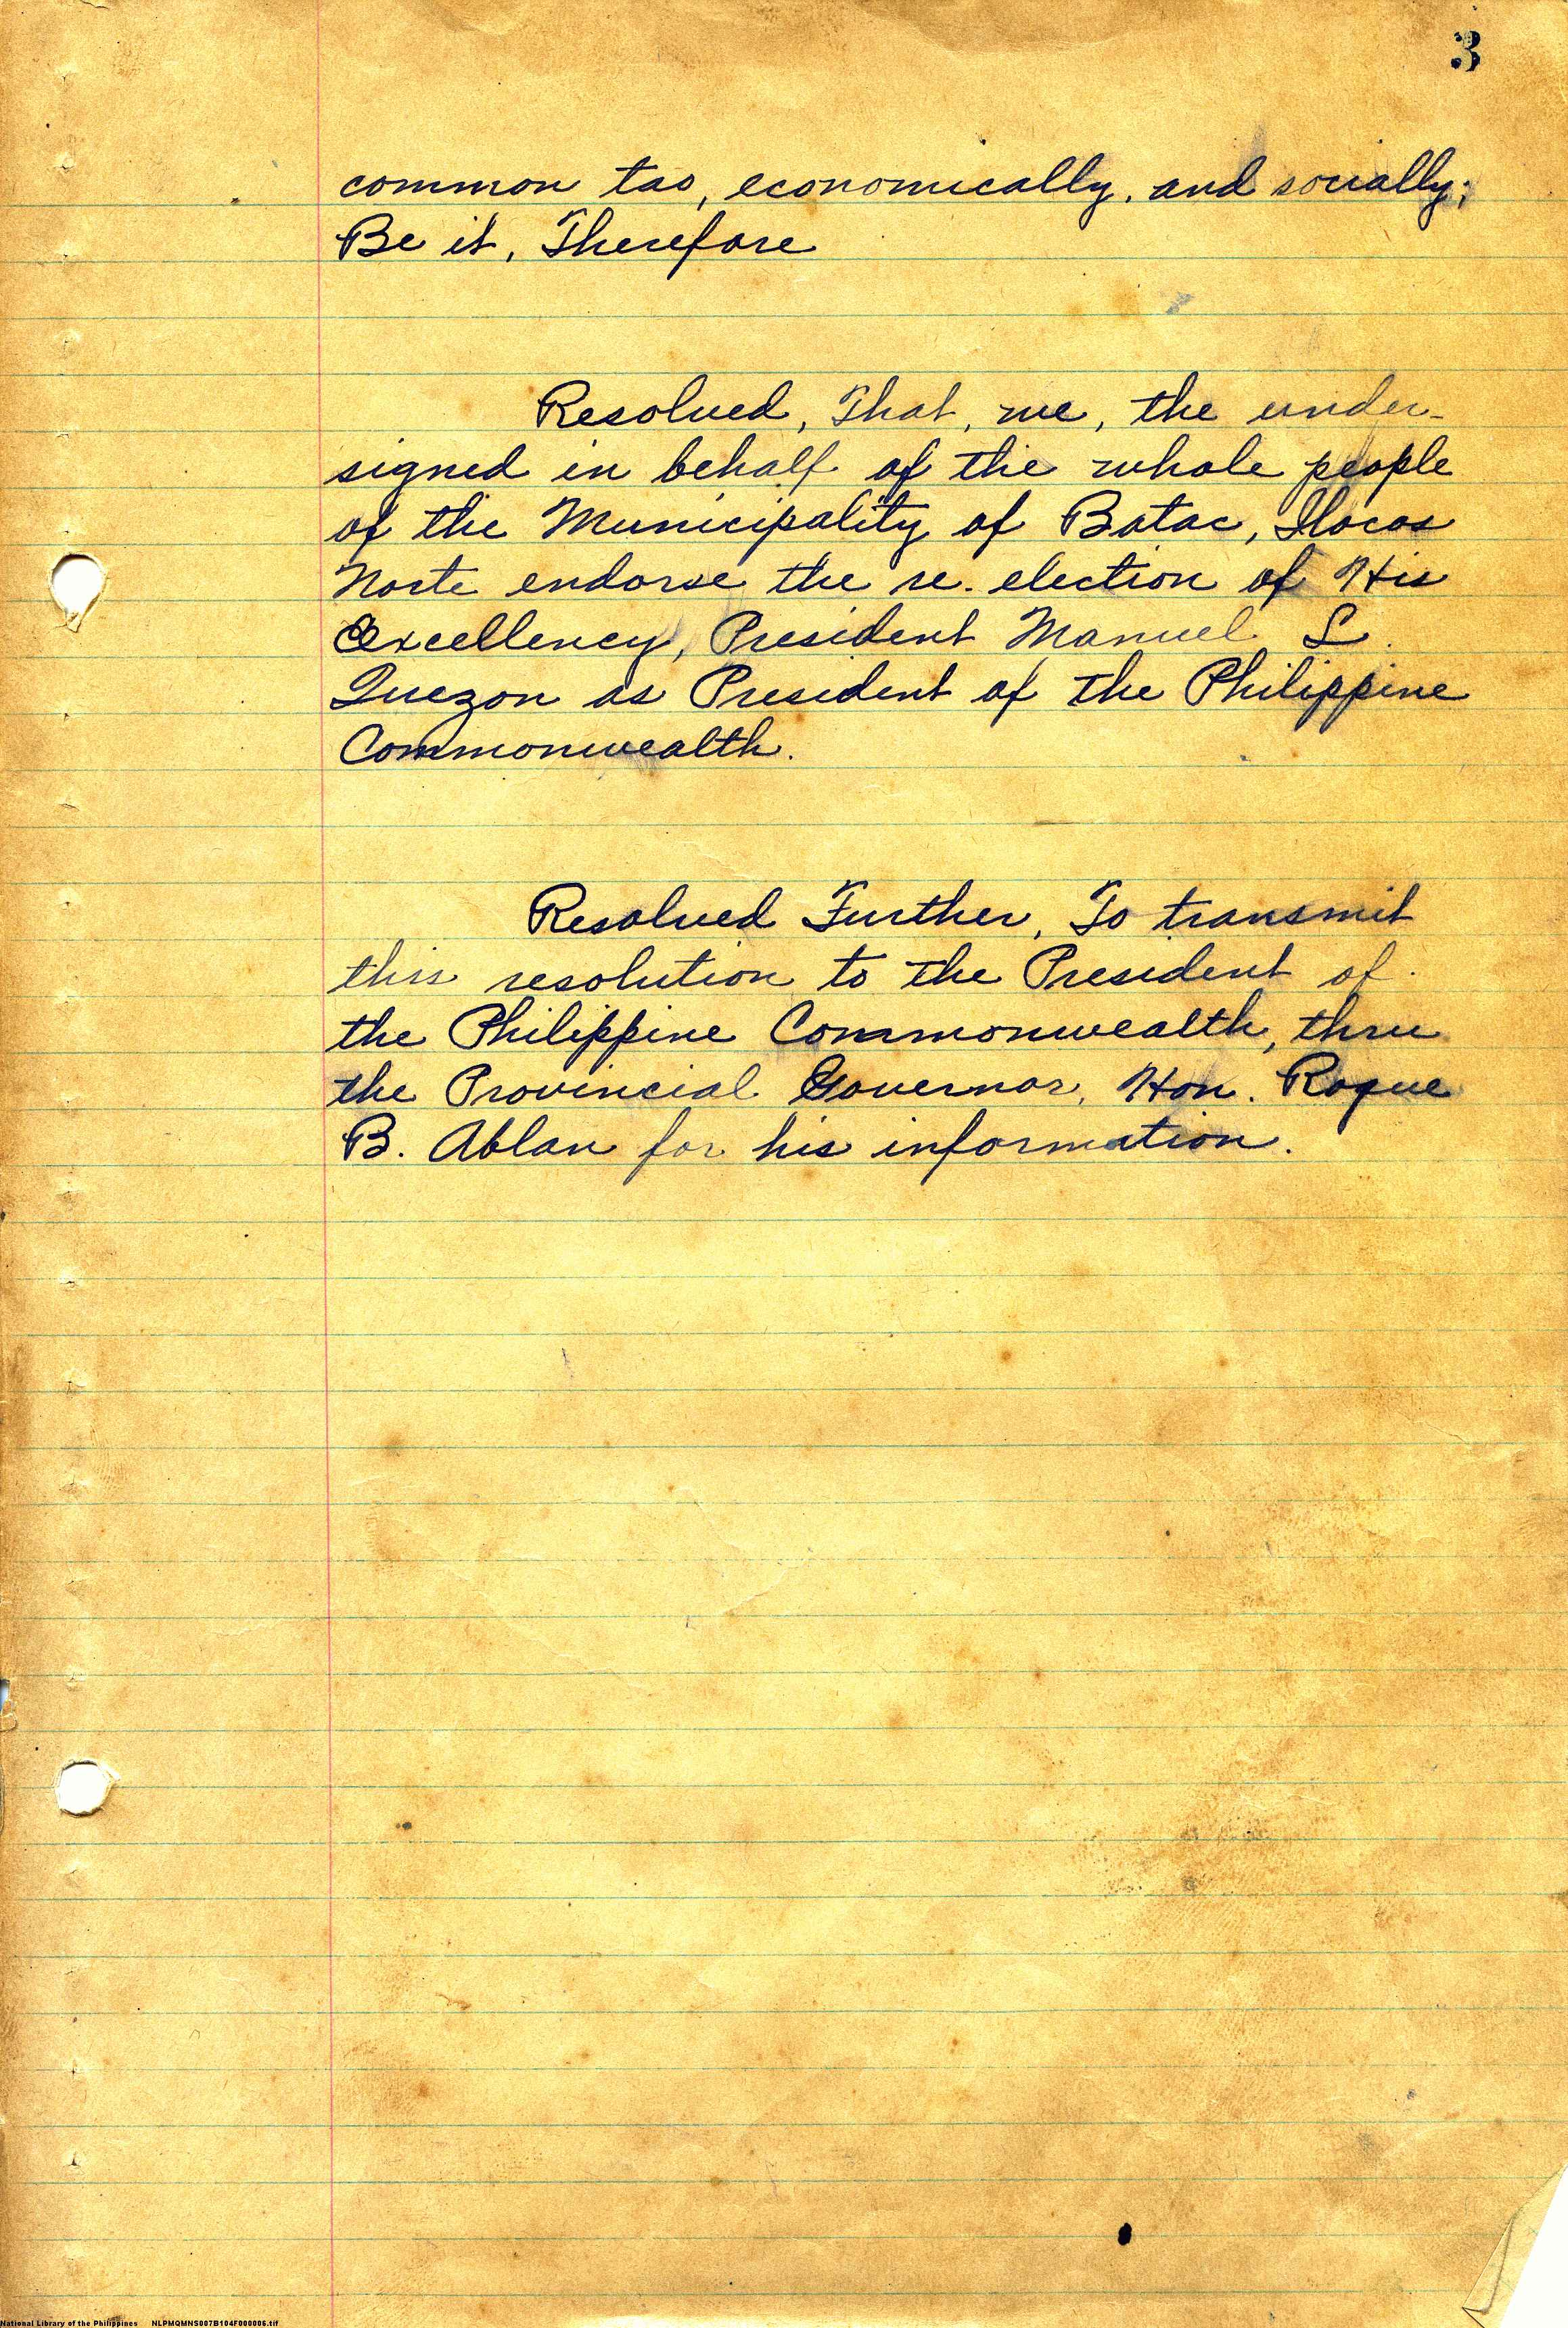 3
common tao, economically, and socially;
Be it, Therefore
Resolved, That, we, the under-
signed in behalf of the whole people
of the Municipality of Batac, Ilocos
Norte endorse the re-election of His
Excellency, President Manuel L.
Quezon as President of the Philippine
Commonwealth.
Resolved Further, To transmit
this resolution to the President of
the Philippine Commonwealth, thru
the Provincial Governor, Hon. Roque
B. Ablan for his information.
National Library of the Philippines NLPMQMNS007B104F000006.tif